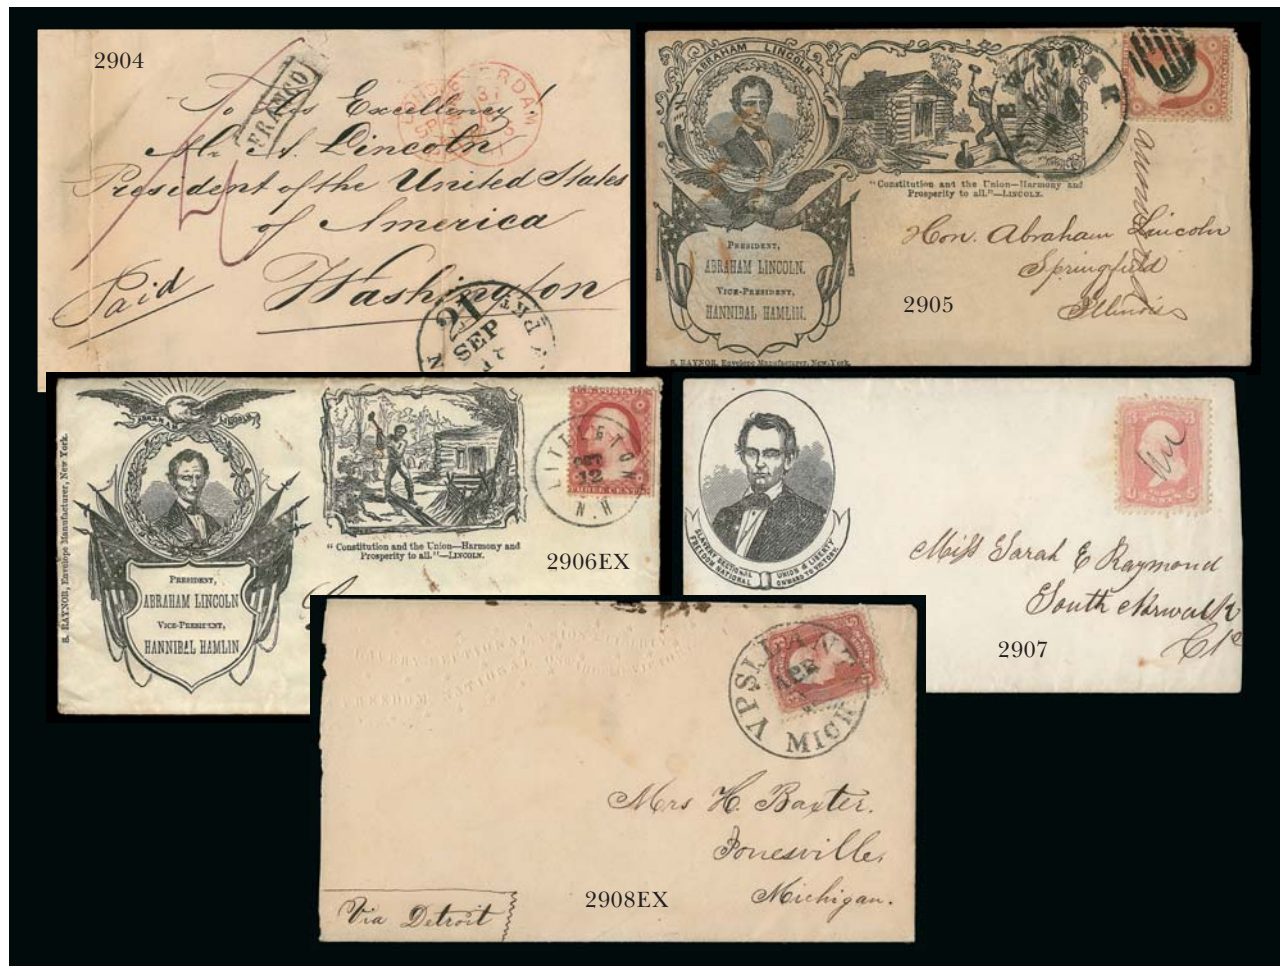 2904
FRANCO
To His Excellency!
Mr. A. Lincoln
President of the United States
of America
Washington
Paid
21
SEP
ABRAHAM LINCOLN
"Constitution and the Union—Harmony and
Prosperity to all."—LINCOLN.
PRESIDENT,
ABRAHAM LINCOLN.
VICE-PRESIDENT,
HANNIBAL HAMLIN.
S. RAYNOR, Envelope Manufacturer, New-York.
Hon. Abraham Lincoln
Springfield
Illinois
2905
S. RAYNOR, Envelope Manufacturer, New York.
ABRAHAM LINCOLN
PRESIDENT,
ABRAHAM LINCOLN
VICE-PRESIDENT,
HANNIBAL HAMLIN
"Constitution and the Union—Harmony and
Prosperity to all."—LINCOLN.
LITTLETON
12
N.H
THREE CENTS
2906EX
SLAVERY SECTIONAL
FREEDOM NATIONAL
UNION & LIBERTY
ONWARD TO VICTORY.
Miss Sarah E Raymond
South Norwalk
Cte
2907
SLAVERY SECTIONAL UNION & LIBERTY
FREEDOM NATIONAL ONWARD TO VICTORY.
YPSILANTI
APR
MICH
Mrs H. Baxter.
Jonesville,
Michigan.
Via Detroit
2908EX